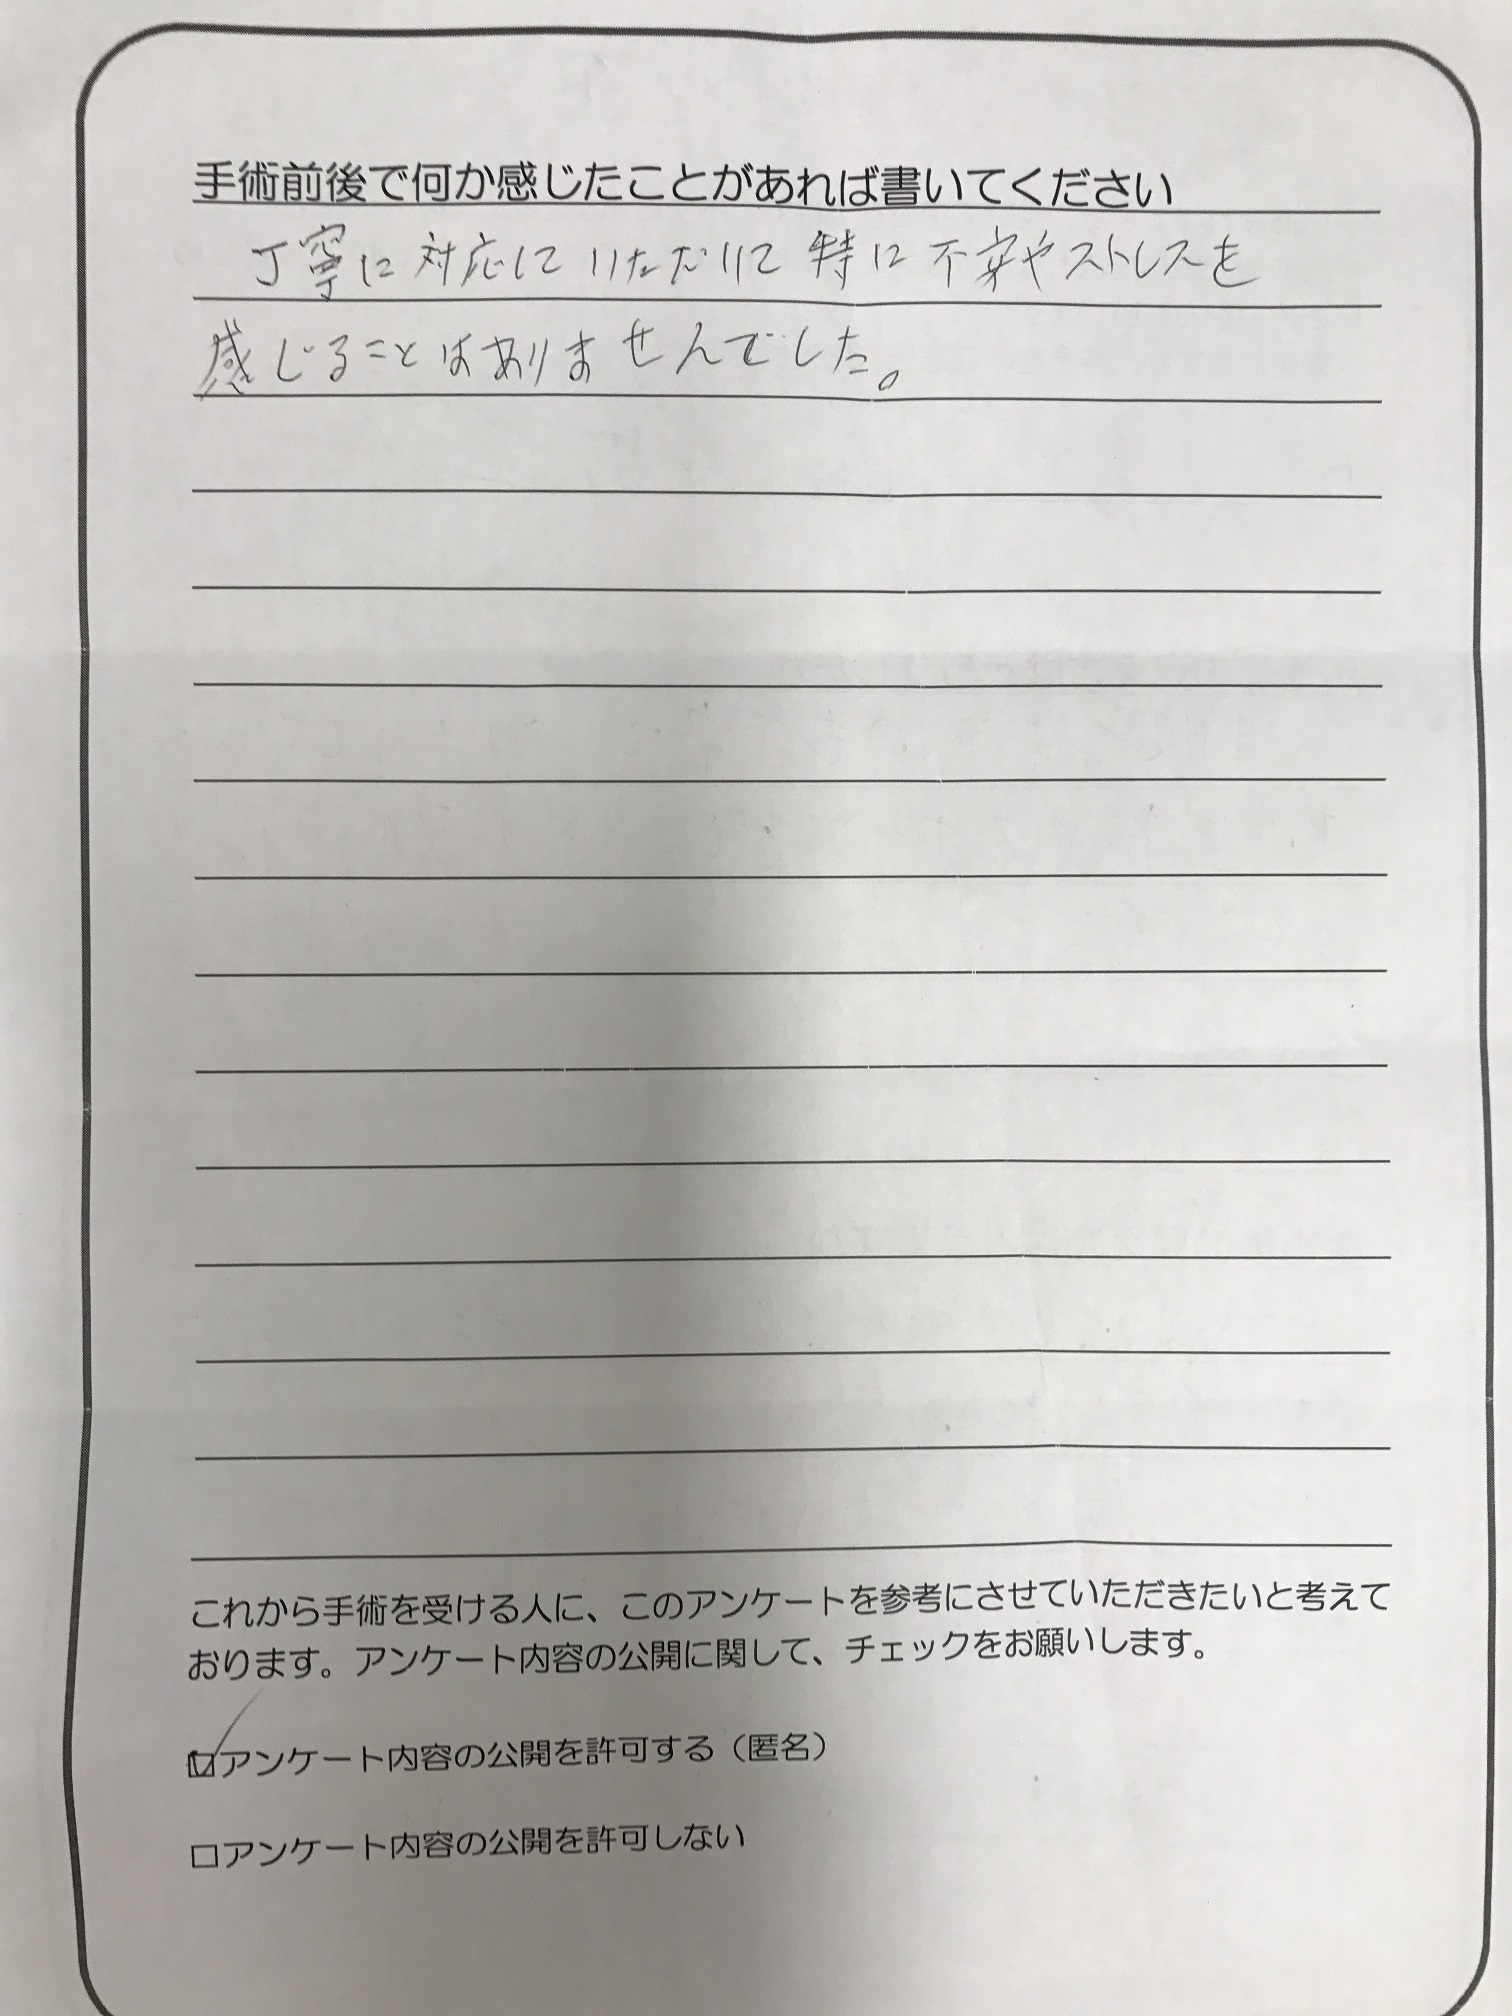 手術前後で何か感じたことがあれば書いてください
丁寧に対応していただいて特に不安やストレスを
感じることはありませんでした。
これから手術を受ける人に、このアンケートを参考にさせていただきたいと考えて
おります。アンケート内容の公開に関して、チェックをお願いします。
☑アンケート内容の公開を許可する（匿名）
□アンケート内容の公開を許可しない